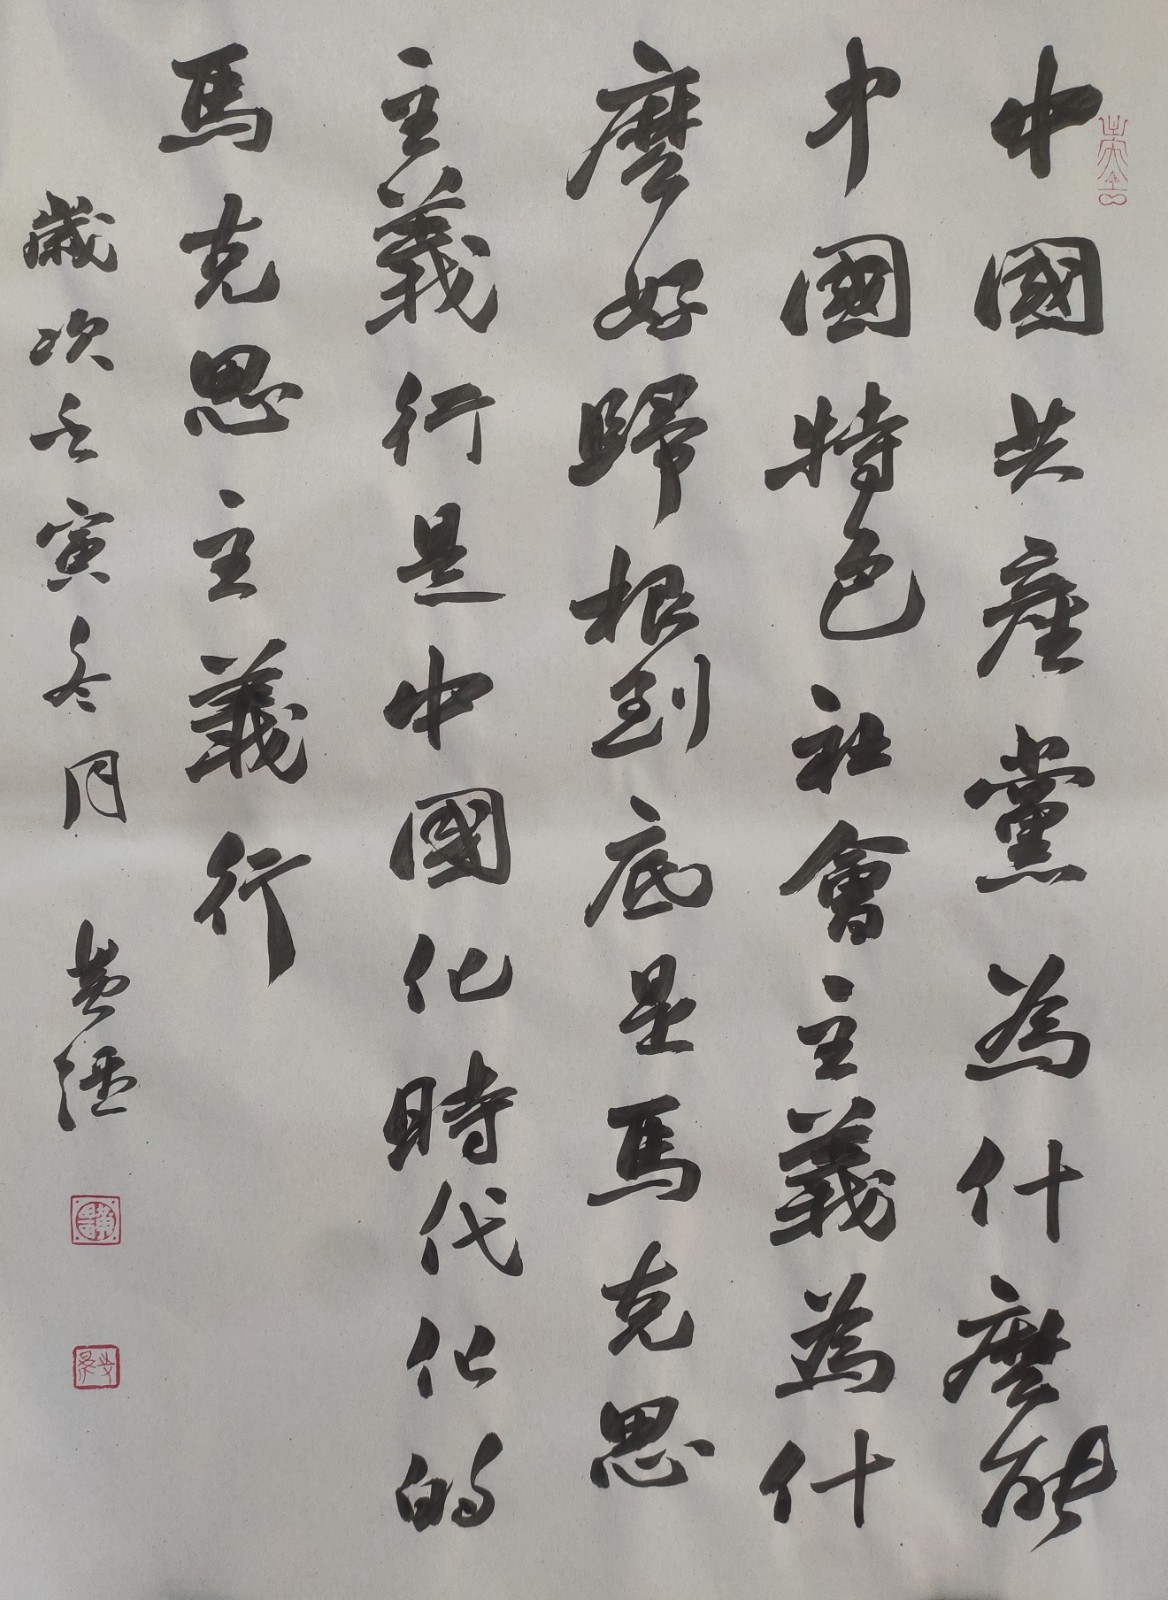 中國共產黨為什麼能
中國特色社會主義為什
麼好歸根到底是馬克思
主義行是中國化時代化的
馬克思主義行
歲次壬寅冬月